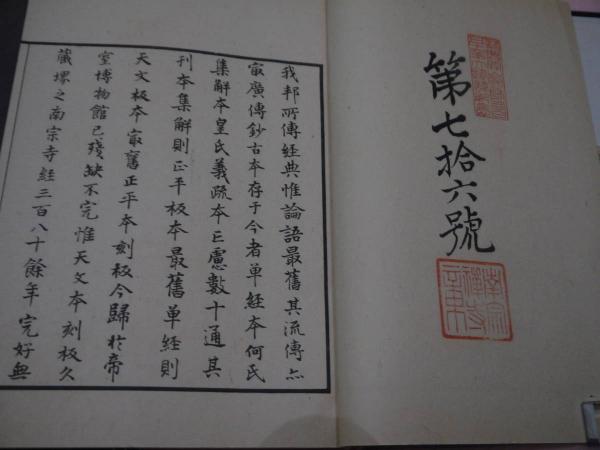 第七拾六號
南宗
禪寺
我邦所傳經典惟論語最舊其流傳亦
寂廣傳鈔古本存于今者單經本何氏
集解本皇氏義疏本亡慮數十通其
刊本集解則正平板本最舊單經則
天文板本寂舊正平本刻板今歸於帝
室博物館已殘缺不完惟天文本刻板久
藏堺之南宗寺經三百八十餘年完好無